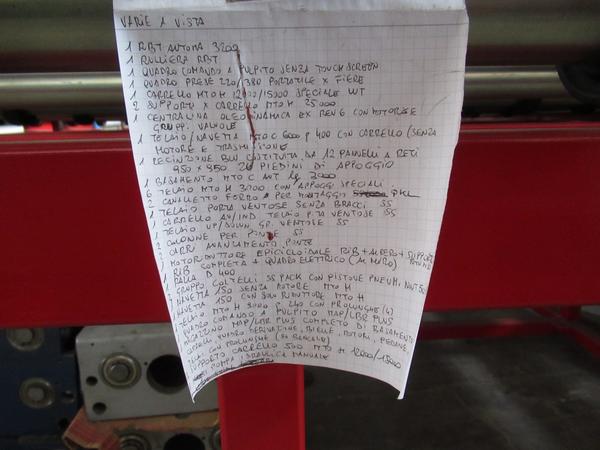 VARIE A VISTA
1 RIBT AUTOMA 3200
1 RULLIERA RBT
1 QUADRO COMANDO A PULPITO SENZA TOUCH SCREEN
1 QUADRO PRESE 220/380 PORTATILE X FIERE
1 CARRELLO MTO H 12000/15000 SPECIALE WT
2 SUPPORTI X CARRELLO MTO H 25000
1 CENTRALINA OLEODINAMICA EX REN 6 CON MOTORI SE
GRUPPI VALVOLE
1 TELAIO/NAVETTA MTO C 6000 P 400 CON CARRELLO (SENZA
MOTORE E TRASMISSIONE
1 RECINZIONE BLU COSTITUITA DA 12 PANNELLI A RETI
950 X 950 26 PIEDINI DI APPOGGIO
1 BASAMENTO MTO C ANT 3000
6 TELAIO MTO H 3200 CON APPOGGI SPECIALI
2 CAVALLETTO FORRO PER MONTAGGIO
1 TELAIO PORTA VENTOSE SENZA BRACCI SS
1 CARRELLO AV/IND TELAIO P.TA VENTOSE SS
1 TELAIO UP/DOWN GR. VENTOSE SS
2 COLONNE PER PONTE SS
2 CARRI AVANZAMENTO PONTE
MOTORIDUTTORE EPICICLOIDALE RIB + ALBERO + SUPPORTI
1 RIB COMPLETA QUADRO ELETTRICO (AL MURO)
1 PALLA D 400
1 GRUPPO COLTELLI SS PACK CON PISTONE PNEUM.
NAVETTA 150 SENZA MOTORE MTO H
NAVETTA 150 CON SOLO RIDUTTORE MTO H
TELAIO MTO H 3000 P 240 CON PROLUNGHE (4)
QUADRO COMANDO A PULPITO MAP/LBR PLUS
MAP/LBR PLUS COMPLETO DI BASAMENTO
QUADRO DERIVAZIONE, BIELLE, MOTORI, PEDANE,
PROLUNGHE
SUPPORTO CARRELLO 500 MTO H 12000/15000
POMPA IDRAULICA MANUALE